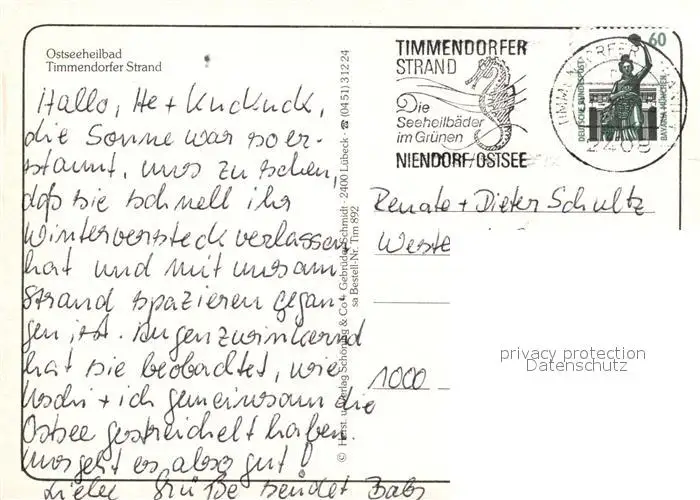 Ostseeheilbad
Timmendorfer Strand
Hallo, He + Kuckuck,
die Sonne war so er-
staunt, uns zu sehen,
daß sie schnell ihr
Winterversteck verlassen
hat und mit uns am
Strand spazieren gegan-
gen ist. Augenzwinkernd
hat sie beobachtet, wie
Uschi + ich gemeinsam die
Ostsee gestreichelt haben.
Uns geht es also gut!
Liebe Grüße sendet Babs
© Herst. u. Verlag Schöning & Co + Gebrüder Schmidt · 2400 Lübeck · ☎ (0451) 3 12 24
sa Bestell-Nr. Tim 892
TIMMENDORFER
STRAND
Die
Seeheilbäder
im Grünen
NIENDORF/OSTSEE
TIMMENDORFER STRAND
2408
60
DEUTSCHE BUNDESPOST
BAVARIA MÜNCHEN
Renate + Dieter Schultz
Weste
1000
privacy protection
Datenschutz